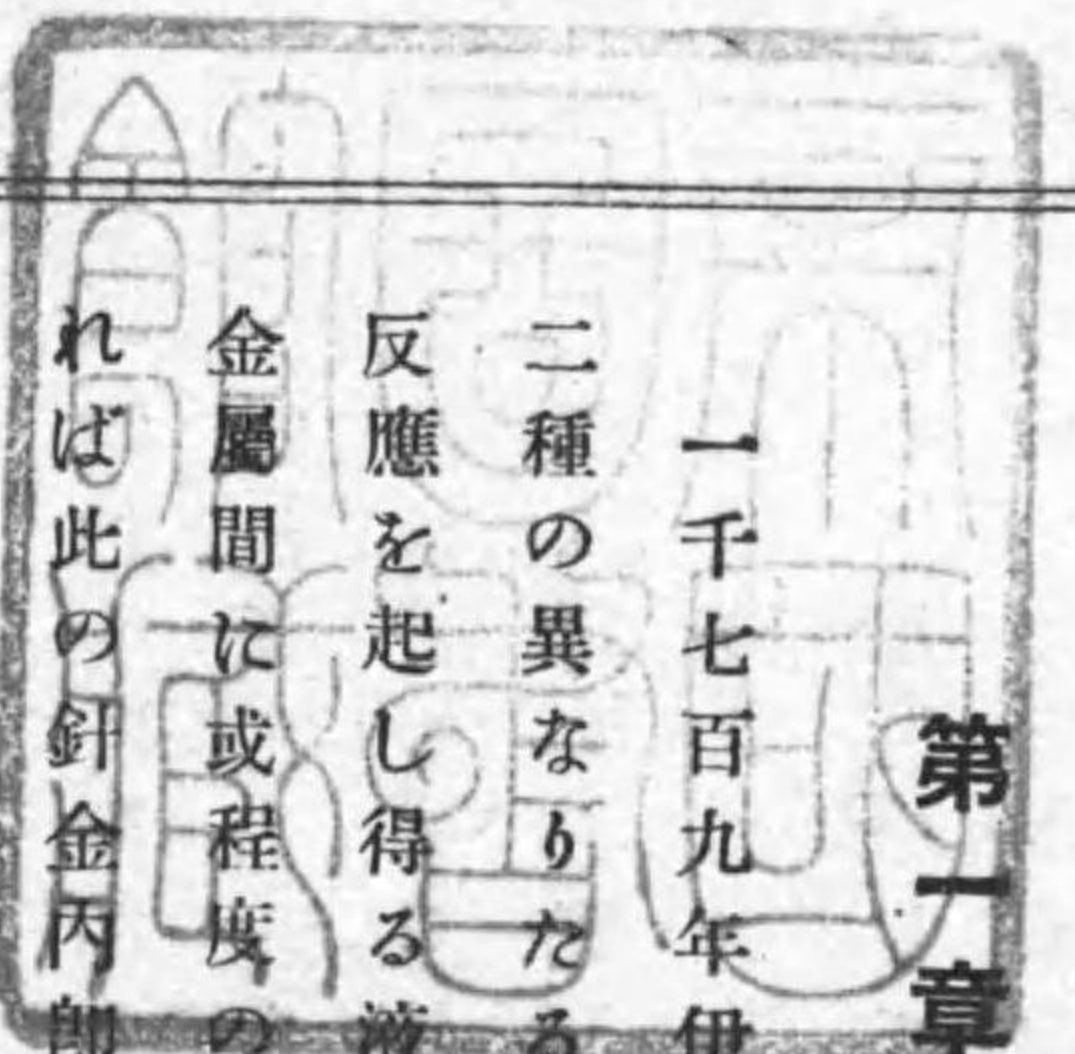 第一章
一千七百九年伊
二種の異なりたる
反應を起し得る液
金屬間に或程度の
れば此の針金內卽